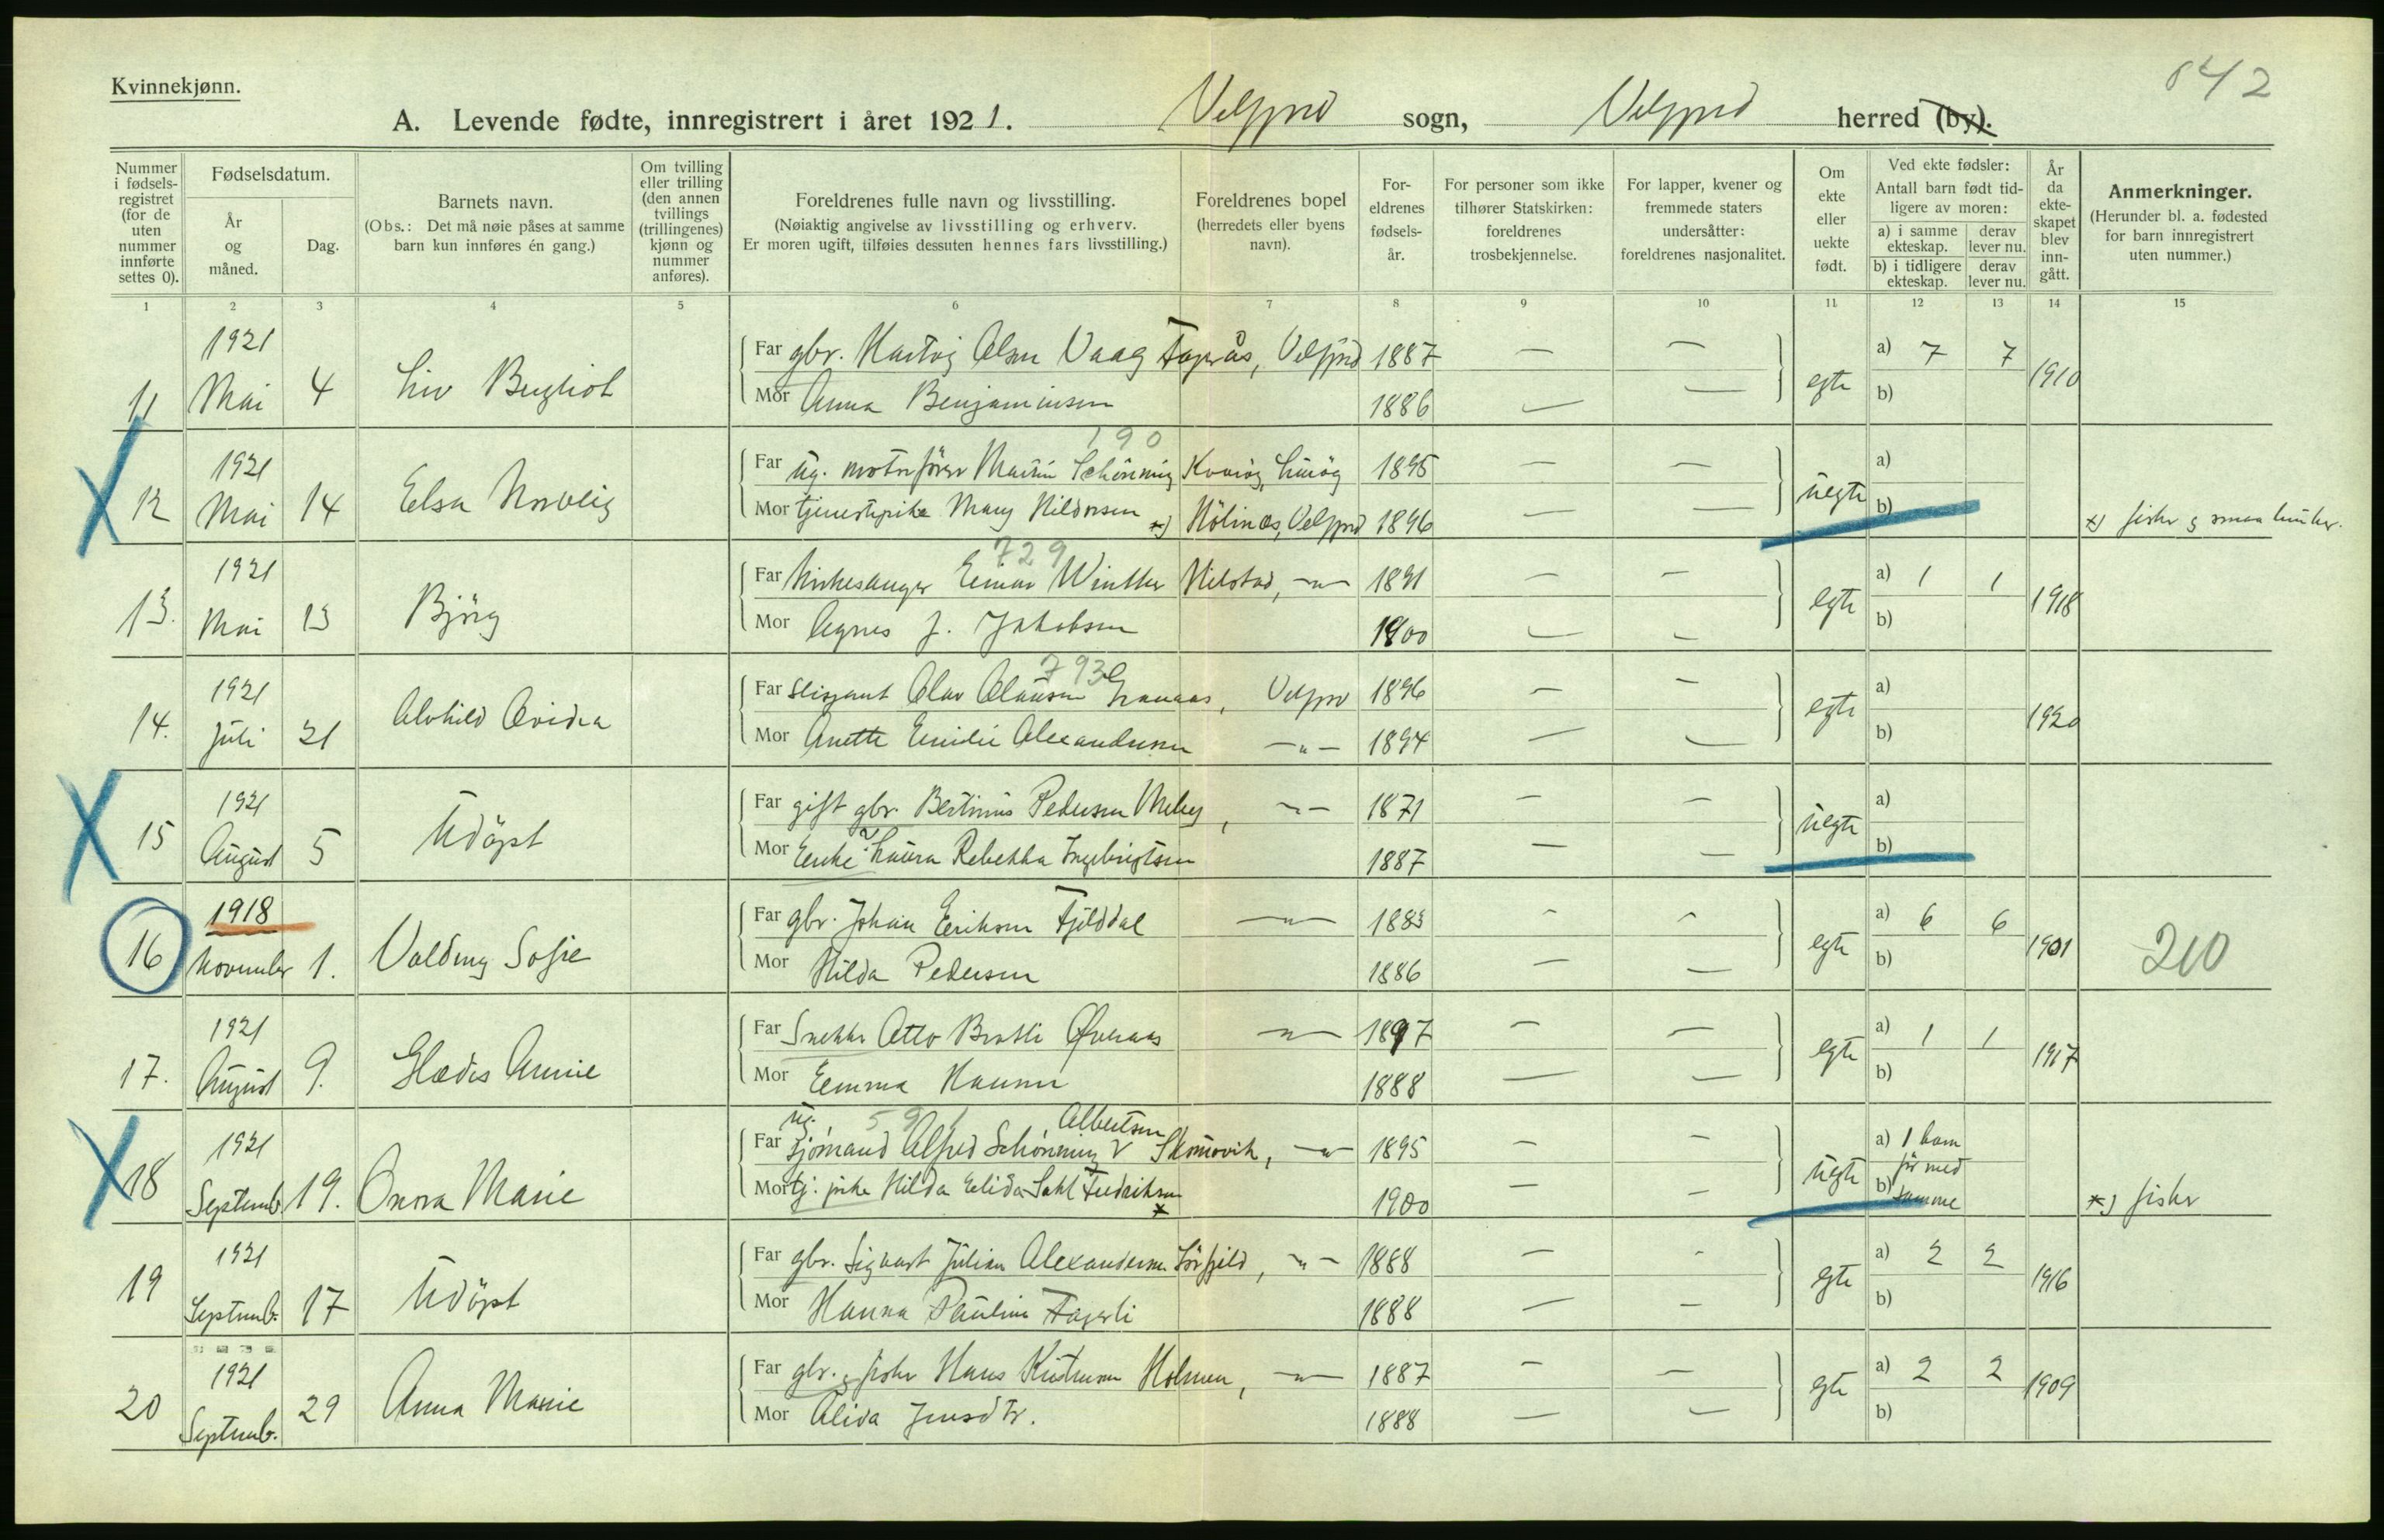 Kvinnekjønn.
642
A. Levende fødte, innregistrert i året 1921. Velfjord sogn, Velfjord herred (by).
Nummer i fødselsregistret (for de uten nummer innførte settes 0).
Fødselsdatum.
År og måned.
Dag.
Barnets navn.
(Obs.: Det må nøie påses at samme barn kun innføres én gang.)
Om tvilling eller trilling (den annen tvillings (trillingenes) kjønn og nummer anføres).
Foreldrenes fulle navn og livsstilling.
(Nøiaktig angivelse av livsstilling og erhverv.
Er moren ugift, tilføies dessuten hennes fars livsstilling.)
Foreldrenes bopel (herredets eller byens navn).
Foreldrenes fødselsår.
For personer som ikke tilhører Statskirken: foreldrenes trosbekjennelse.
For lapper, kvener og fremmede staters undersåtter: foreldrenes nasjonalitet.
Om ekte eller uekte født.
Ved ekte fødsler:
Antall barn født tidligere av moren:
a) i samme ekteskap. derav lever nu.
b) i tidligere ekteskap. derav lever nu.
År da ekteskapet blev inngått.
Anmerkninger.
(Herunder bl. a. fødested for barn innregistrert uten nummer.)
1 2 3 4 5 6 7 8 9 10 11 12 13 14 15
11 1921 Mai 4 Liv Bergliot
Far gbr. Hartvig Olsen Vaag Fagerås, Velfjord 1887 — — egte a) 7 7 1910
Mor Anna Benjaminsen 1886 — — b)
190
12 1921 Mai 14 Elsa Norveig
Far ug. motorfører Martin Schönning Kvarøy, Lurøy 1895 — — uegte a)
Mor tjenestepike Mary Hildorsen *) Hölines, Velfjord 1896 — — b) *) fisker g smaabruker.
729
13. 1921 Mai 13 Björg
Far Kirkesanger Einar Winther Hilstad, —"— 1891 — — egte a) 1 1 1918
Mor Agnes J. Jakobsen 1900 — — b)
793
14. 1921 Juli 21 Alvhild Ovidia
Far Olav Olausen Granaas, Velfjord 1896 — — egte a) 1920
Mor Anette Emilie Alexandersen —"— 1894 — — b)
15 1921 August 5 Udöpt
Far gift gbr. Bertinus Pedersen —"— 1871 — — uegte a)
Mor Enke Laura Rebekka Ingebrigtsen 1887 — — b)
16 1918 November 1. Valborg Sofie
Far gbr. Johan Eriksen Fjelddal —"— 1883 — — egte a) 6 6 1901 210
Mor Hilda Pedersen 1886 — — b)
17. 1921 August 9. Glædis Annie
Far Snekker Otto Bratli Øveraas —"— 1897 — — egte a) 1 1 1917
Mor Emma Hansen 1888 — — b)
ug. 591 Albertsen
18 1921 Septemb. 19. Onora Marie
Far sjömand Alfred Schönning V Skomovik, —"— 1895 — — uegte a) 1 barn
Mor tj. pike Hilda Elida Sahl Fredriksen * 1900 — — b) för med samme *) fisker
19 1921 Septemb. 17 Udöpt
Far gbr. Sigvart Julian Alexandersen Sörfjeld, —"— 1888 — — egte a) 2 2 1916
Mor Hanna Pauline Fagerli 1888 — — b)
20 1921 Septemb. 29 Anna Marie
Far gbr. g fisker Hans Kristensen Holmen, —"— 1887 — — egte a) 2 2 1909
Mor Alida Jensdtr. 1888 — — b)